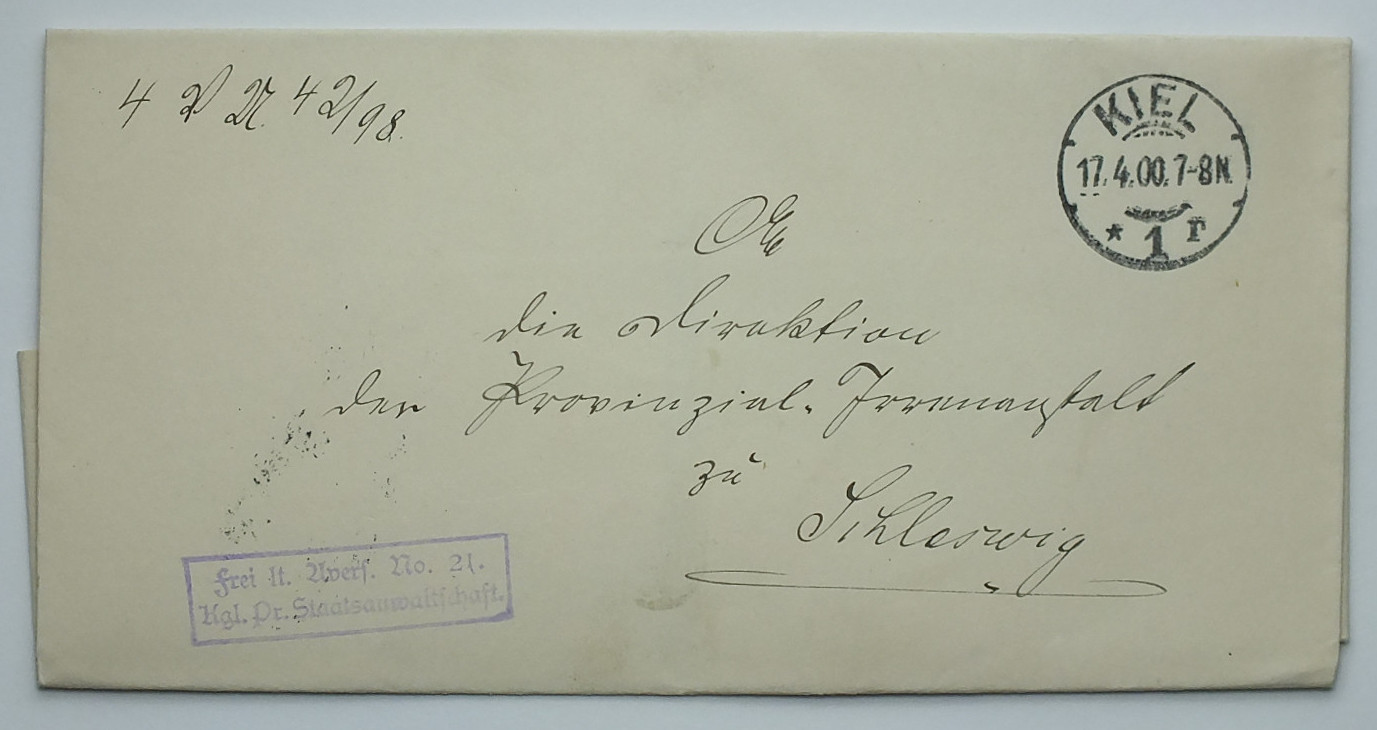 4 P N. 42/98.
KIEL
17.4.00.7-8N.
* 1 r
An
die Direktion
der Provinzial-Irrenanstalt
zu
Schleswig
Frei lt. Avers. No. 21.
Kgl. Pr. Staatsanwaltschaft.